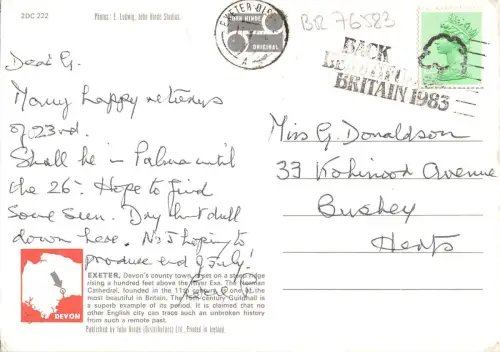 2DC 222
Photos: E. Ludwig, John Hinde Studios.
EXETER
JOHN HINDE
ORIGINAL
BR 76583
BACK
BEAUTIFUL
BRITAIN 1983
Dear G.
Many happy returns
of 23rd.
Shall be in Palma until
the 26th. Hope to find
some sun. Dry but dull
down here. No 5 hoping to
produce end of July!
Miss G. Donaldson
33 Kohinoor Avenue
Bushey
Herts
DEVON
EXETER, Devon's county town, set on a steep ridge
rising a hundred feet above the River Exe. The Norman
Cathedral, founded in the 11th century, is one of the
most beautiful in Britain. The 15th century Guildhall is
a superb example of its period. It is claimed that no
other English city can trace such an unbroken history
from such a remote past.
Published by John Hinde (Distributors) Ltd., Printed in Ireland.